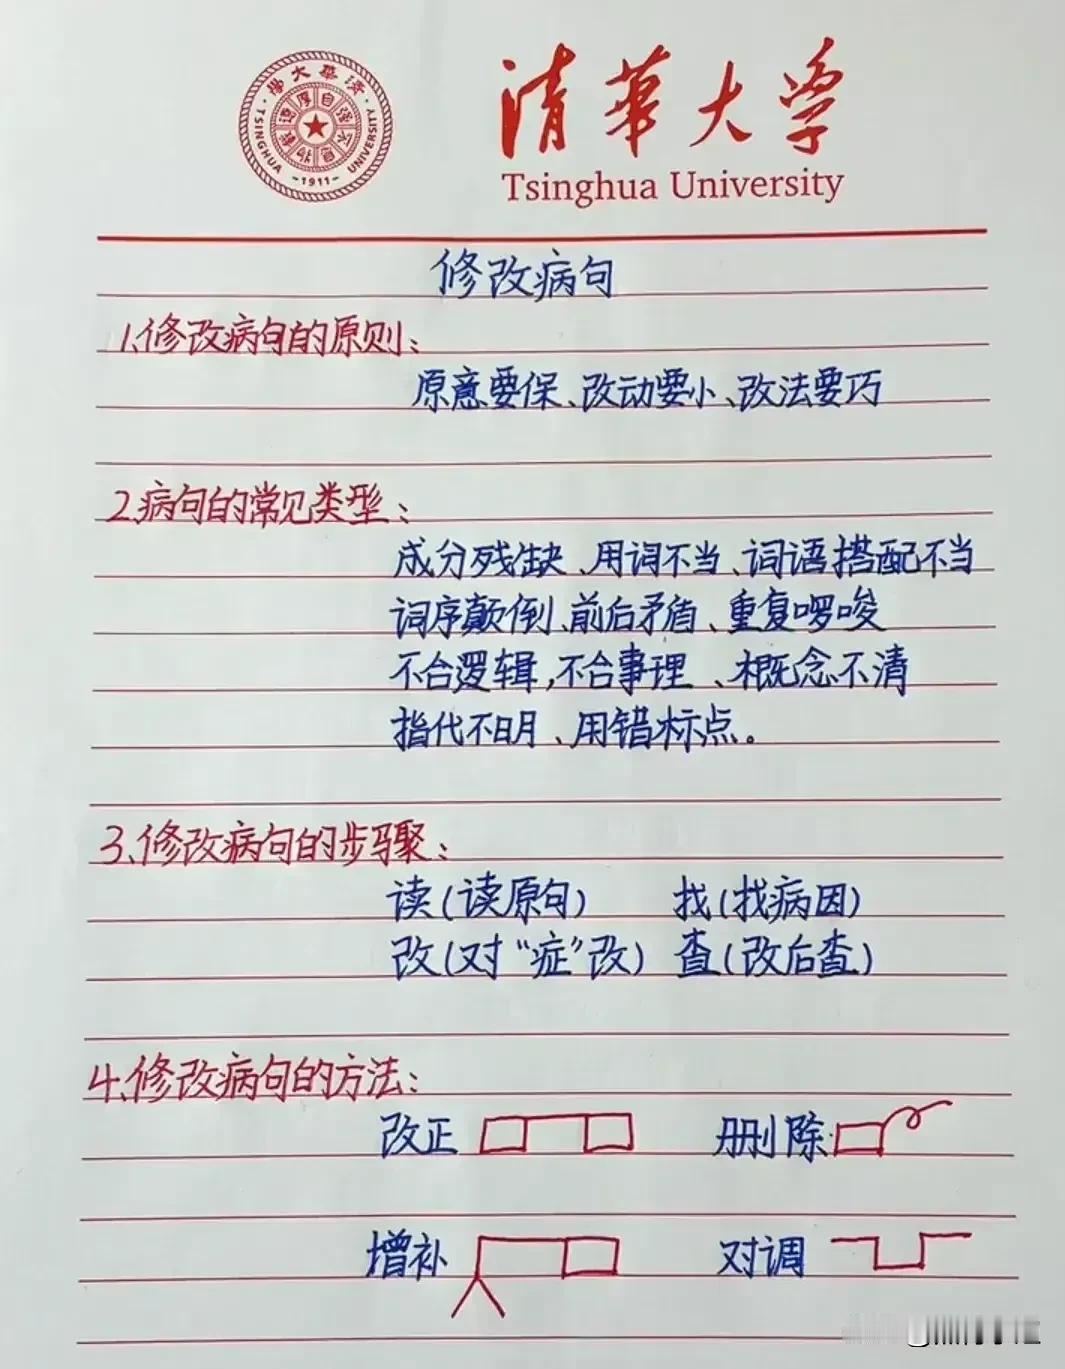 清華大学
Tsinghua University
清華大學
TSINGHUA UNIVERSITY
自强不息
厚德載物
-1911-
修改病句
1.修改病句的原则:
原意要保、改动要小、改法要巧
2.病句的常见类型:
成分残缺、用词不当、词语搭配不当
词序颠倒、前后矛盾、重复啰唆
不合逻辑,不合事理、概念不清
指代不明、用错标点。
3.修改病句的步骤:
读(读原句) 找(找病因)
改(对“症”改) 查(改后查)
4.修改病句的方法:
改正 删除
增补 对调